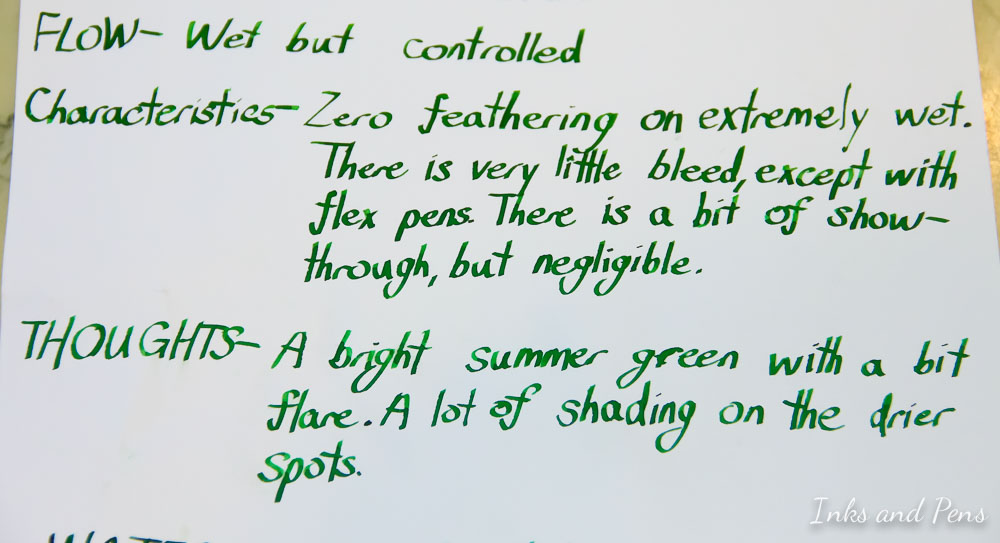 FLOW- Wet but controlled
Characteristics- Zero feathering on extremely wet.
There is very little bleed, except with
flex pens. There is a bit of show-
through, but negligible.
THOUGHTS- A bright summer green with a bit
flare. A lot of shading on the drier
spots.
Inks and Pens